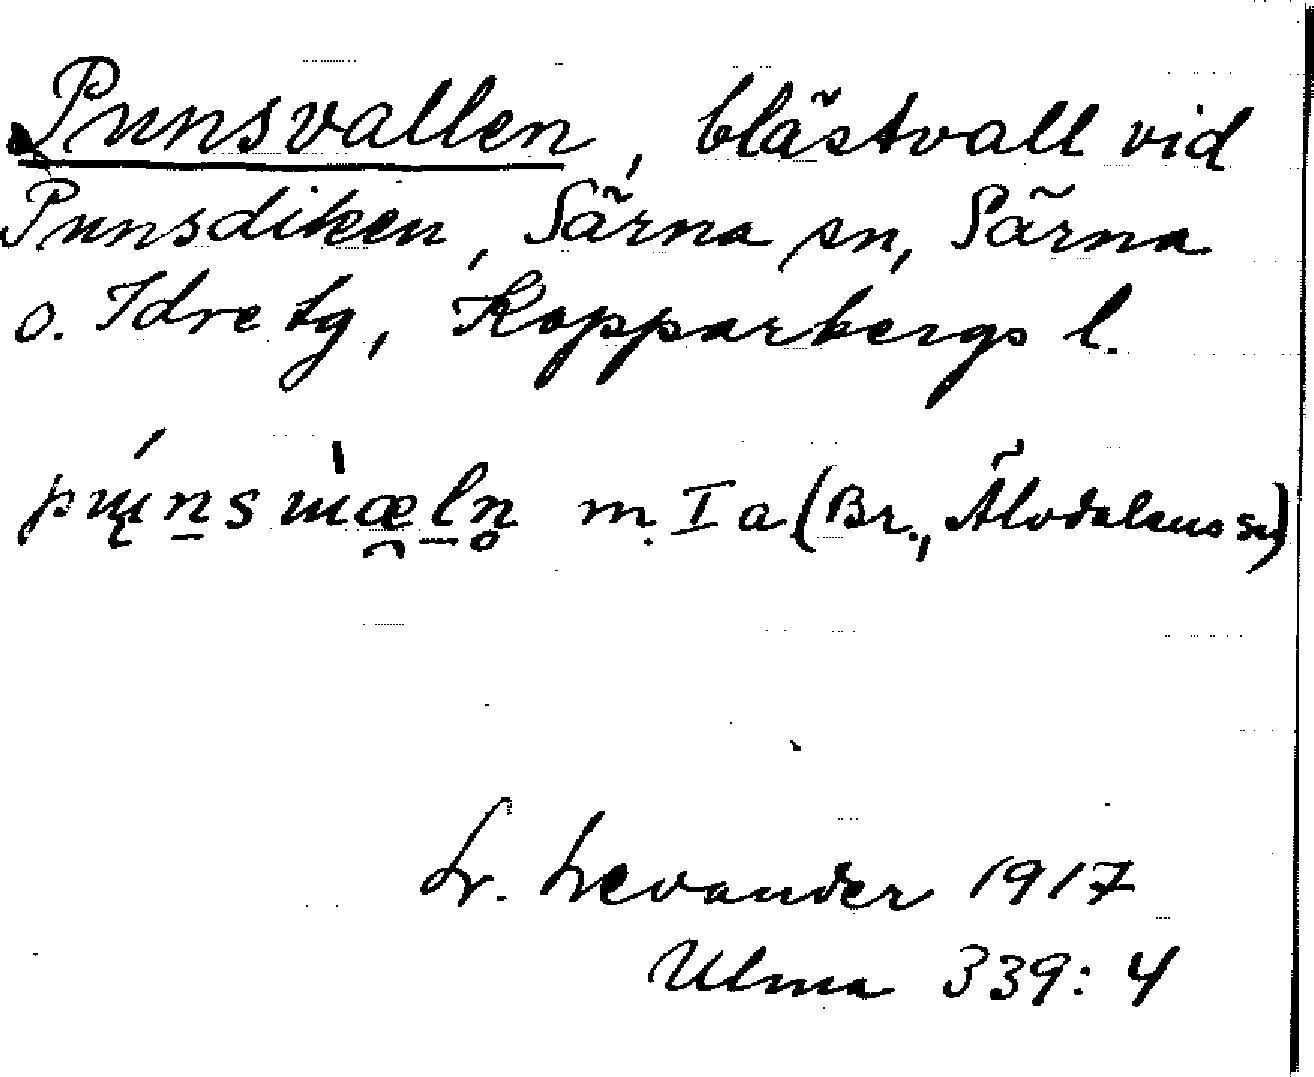 Punsvallen, blästvall vid
Punsdiken, Särna sn, Särna
o. Idre tg, Kopparbergs l.
m. I a (Br., Älvdalens sn)
L. Levander 1917
Ulma 339:4